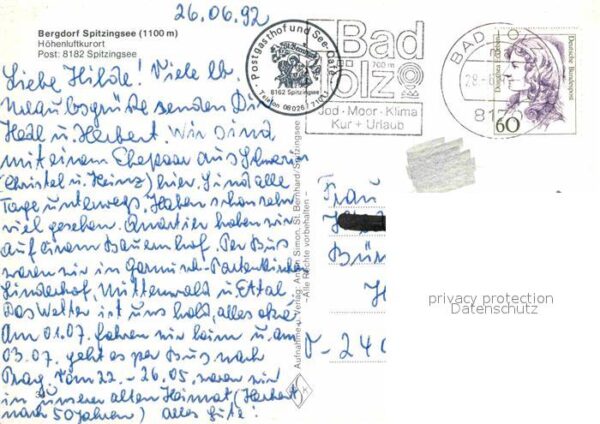 26.06.92
Bergdorf Spitzingsee (1100 m)
Höhenluftkurort
Post: 8182 Spitzingsee
Postgasthof und See-Café
St. Bernhard
8162 Spitzingsee
Telefon 08026/
Bad
Tölz
700 m
Jod-Moor-Klima
Kur + Urlaub
BAD TÖLZ
28-6
Dorothea Erxleben
Deutsche Bundespost
60
Liebe Hilde! Viele lb.
Urlaubsgrüße senden Dir
Hedl u. Herbert. Wir sind
mit einem Ehepaar aus Schwerin
(Christel u. Heinz) hier. Sind alle
Tage unterwegs. Haben schon sehr
viel gesehen. Quartier haben wir
auf einem Bauernhof. Per Bus
waren wir in Garmisch-Partenkirchen
Linderhof, Mittenwald u. Ettal.
Das Wetter ist uns hold, alles okay
Am 01.07. fahren wir heim u. am
03.07. geht es per Bus nach
Prag. Vom 22. - 26.05. waren wir
in unserer alten Heimat (Herbert
nach 50 Jahren) alles Gute!
Aufnahme u. Verlag: Anton Simon, St. Bernhard/Spitzingsee
- Alle Rechte vorbehalten -
Frau
D-240
privacy protection
Datenschutz